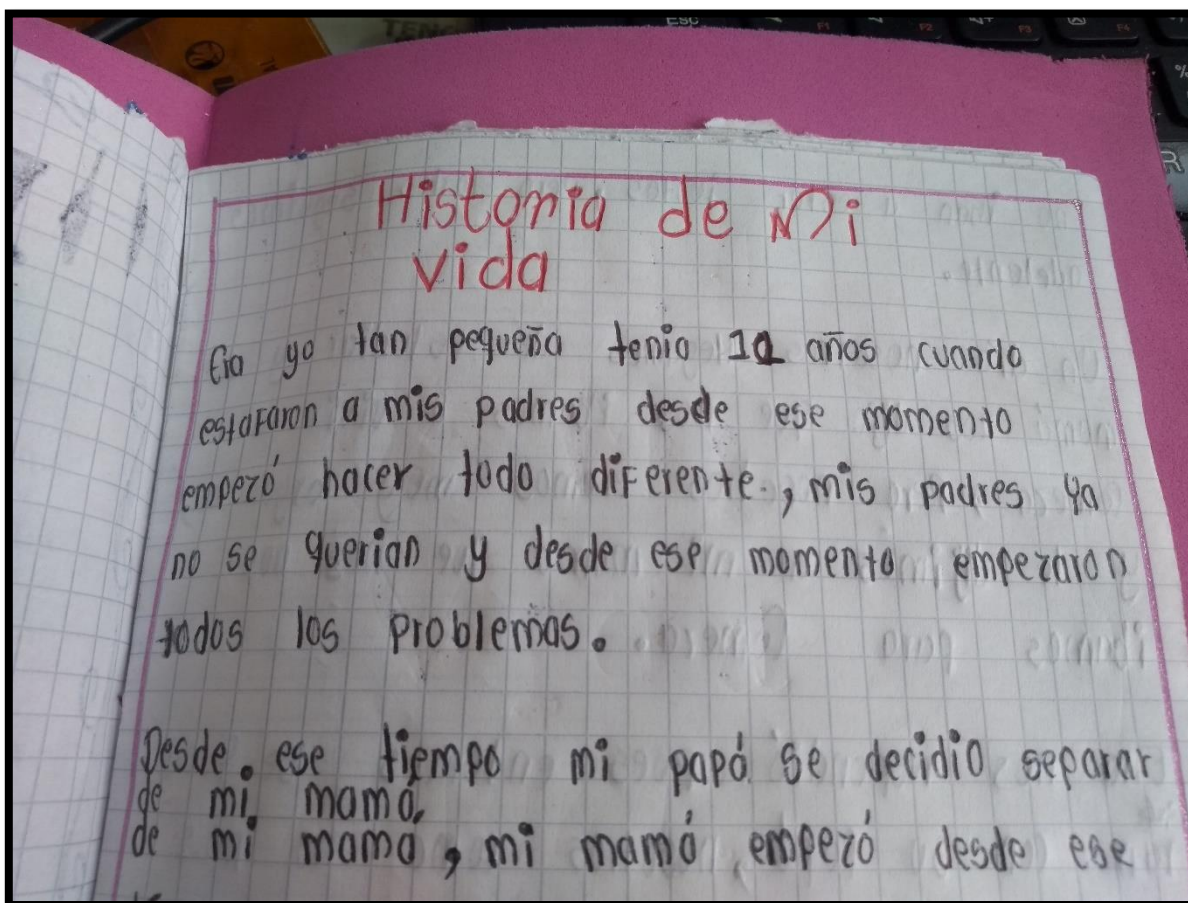 ESC
F1
F2
F3
F4
%
R
Historia de Mi
vida
Era yo tan pequeña tenia años cuando
estafaron a mis padres desde ese momento
empezó hacer todo diferente, mis padres ya
no se querian y desde ese momento empezaron
todos los problemas.
Desde ese tiempo mi papá se decidio separar
de mi mamá,
de mi mama, mi mamá empezó desde ese